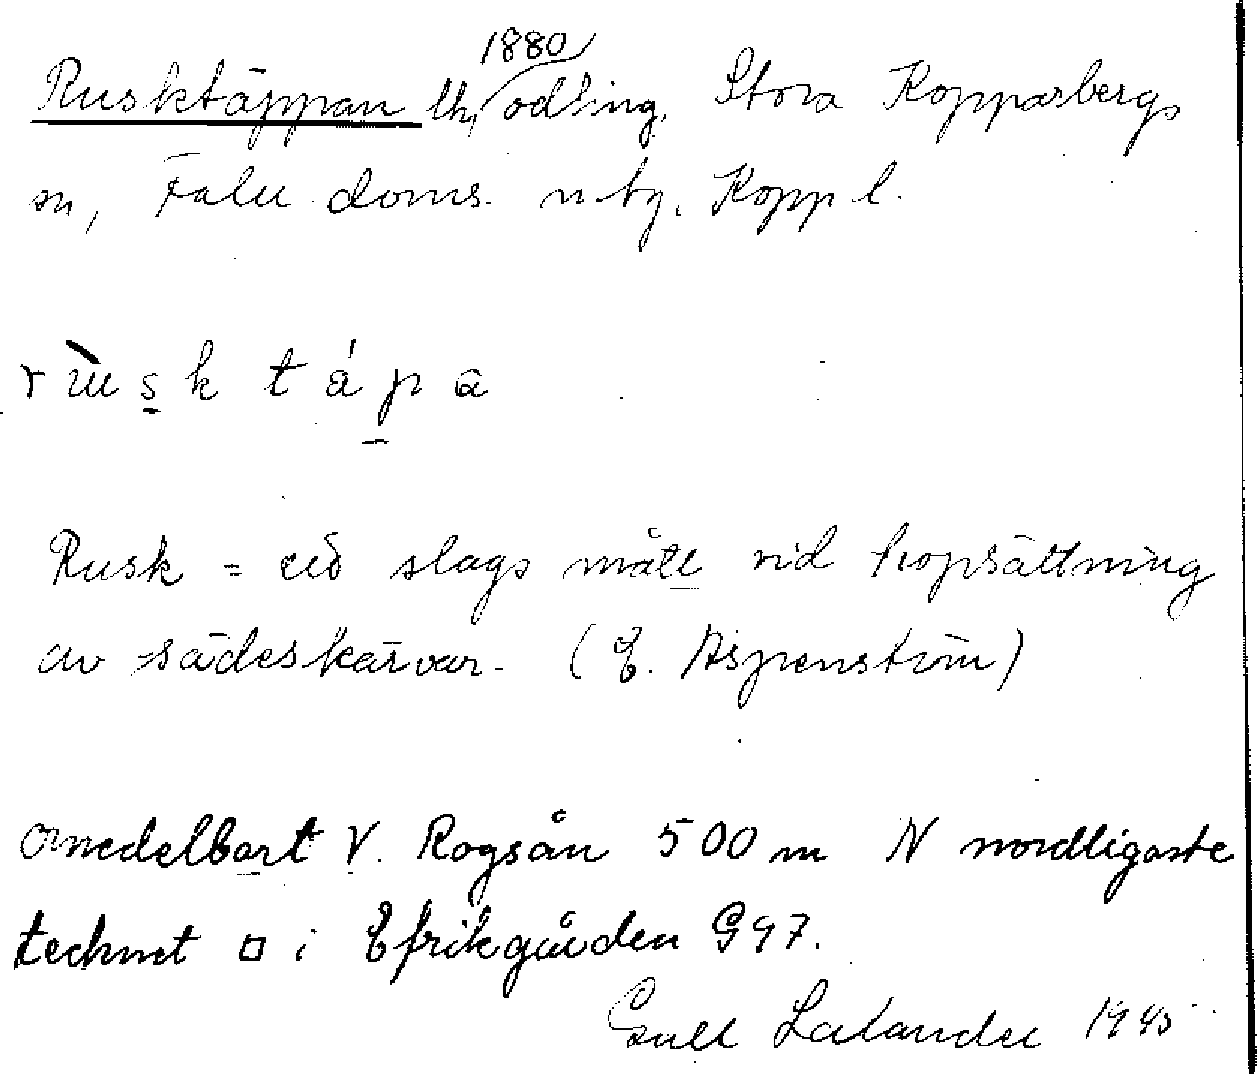 1880
Rusktäppan lh, odling, Stora Kopparbergs
sn, Falu doms. nbg, Kopp l.
rùsktápa
Rusk = ett slags mått vid hopsättning
av sädeskärvar. (E. Aspenström)
omedelbart V. Rogsån 500 m N nordligaste
tecknet □ i Efrikgården G97.
Gull Lalander 1945